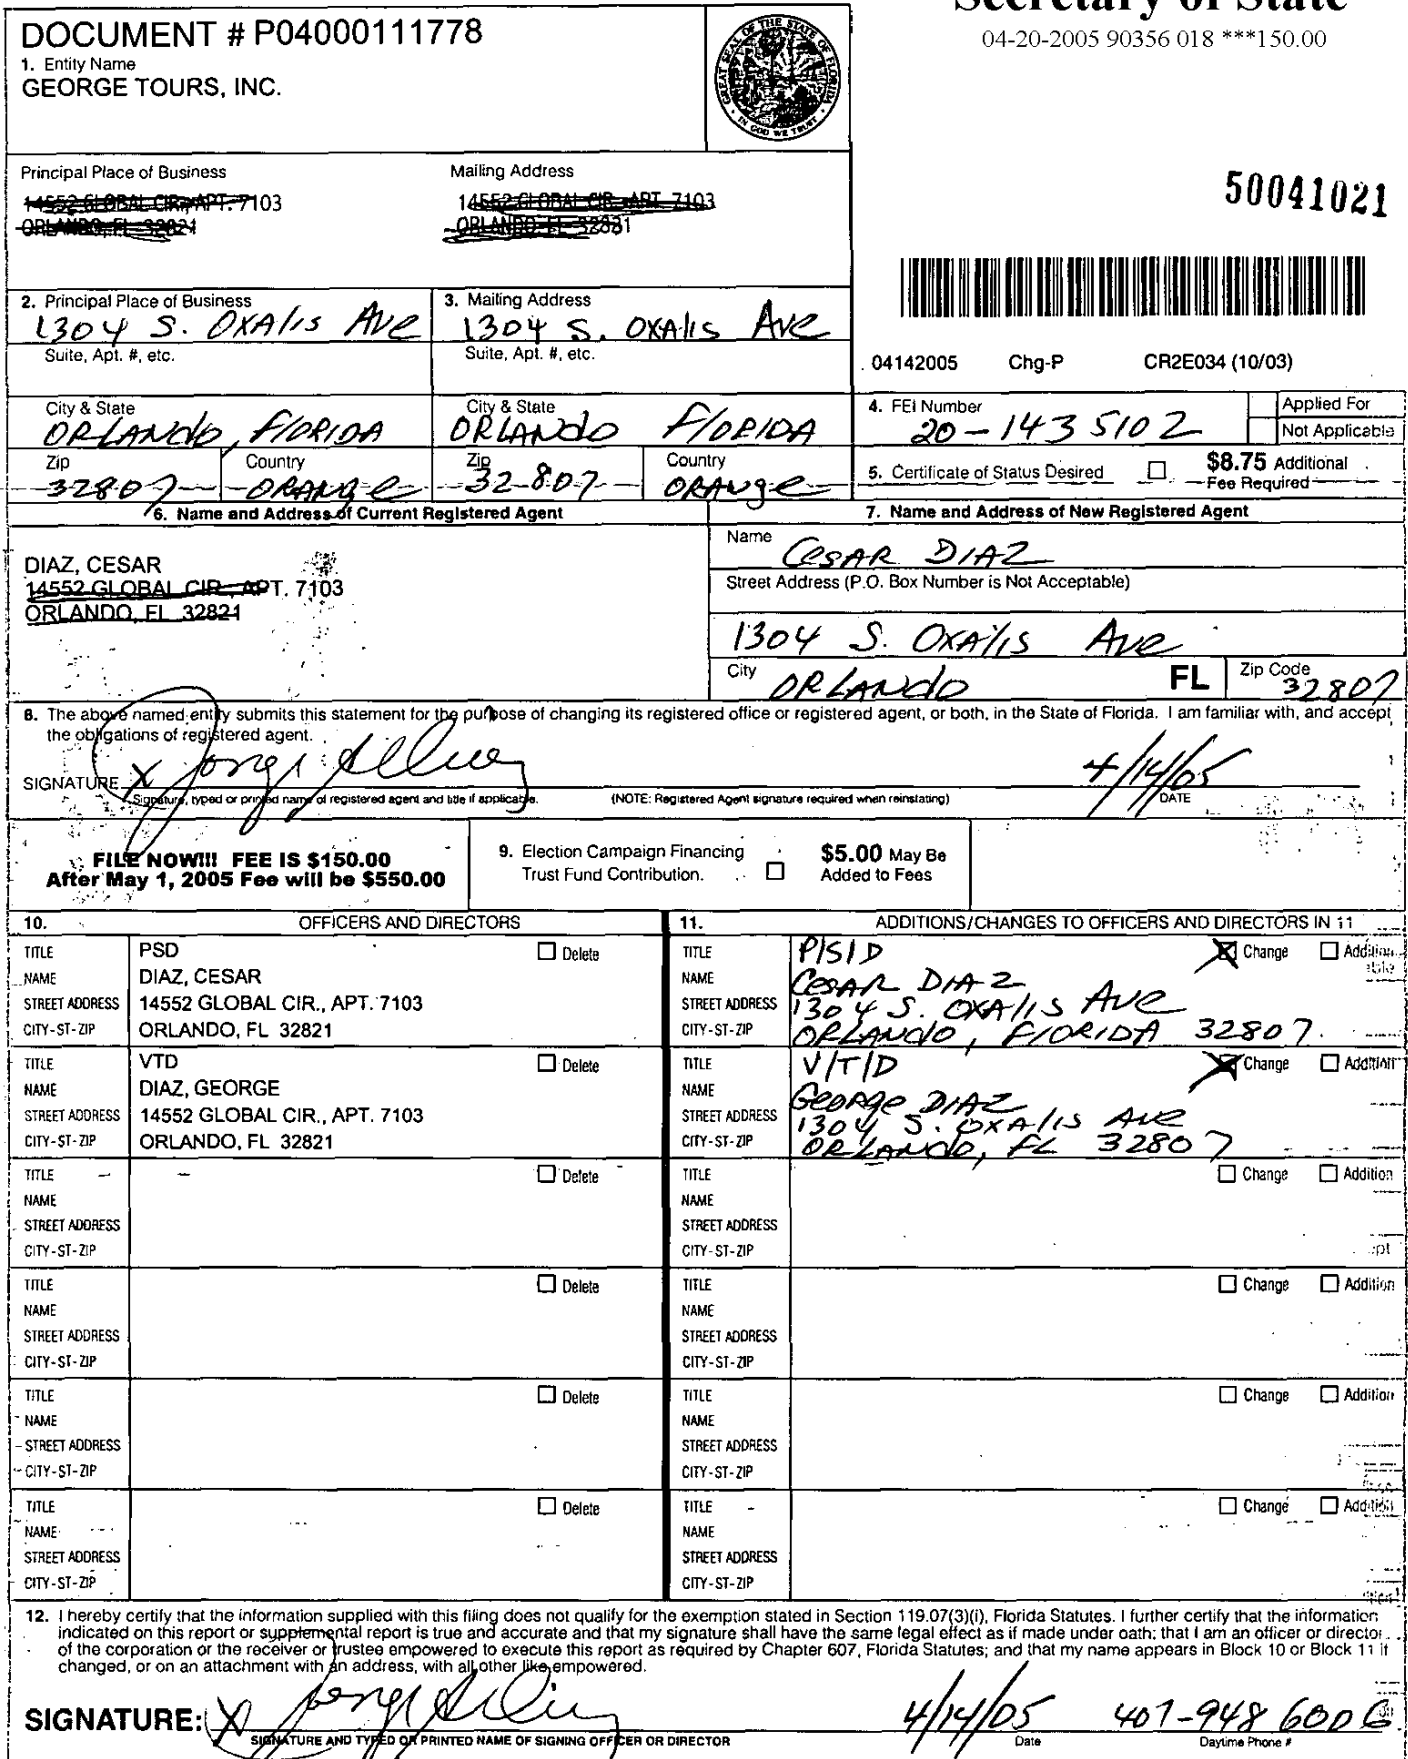 Secretary of State
04-20-2005 90356 018 ***150.00
DOCUMENT # P04000111778
1. Entity Name
GEORGE TOURS, INC.
Principal Place of Business
14552 GLOBAL CIR., APT. 7103
ORLANDO, FL 32821
Mailing Address
14552 GLOBAL CIR., APT. 7103
ORLANDO, FL 32821
50041021
2. Principal Place of Business
1304 S. OXAlis Ave
Suite, Apt. #, etc.
3. Mailing Address
1304 S. OXAlis Ave
Suite, Apt. #, etc.
04142005 Chg-P CR2E034 (10/03)
City & State
ORLANdo, FlORIDA
City & State
ORLANdo FlORIDA
4. FEI Number
20-1435102
Applied For
Not Applicable
Zip
32807
Country
ORANge
Zip
32807
Country
ORANge
5. Certificate of Status Desired
$8.75 Additional
Fee Required
6. Name and Address of Current Registered Agent
DIAZ, CESAR
14552 GLOBAL CIR., APT. 7103
ORLANDO, FL 32821
7. Name and Address of New Registered Agent
Name
CesAR DIAZ
Street Address (P.O. Box Number is Not Acceptable)
1304 S. OXAlis Ave
City
ORLANdo
FL
Zip Code
32807
8. The above named entity submits this statement for the purpose of changing its registered office or registered agent, or both, in the State of Florida. I am familiar with, and accept
the obligations of registered agent.
SIGNATURE X
4/14/05
Signature, typed or printed name of registered agent and title if applicable. (NOTE: Registered Agent signature required when reinstating) DATE
FILE NOW!!! FEE IS $150.00
After May 1, 2005 Fee will be $550.00
9. Election Campaign Financing
Trust Fund Contribution.
$5.00 May Be
Added to Fees
10. OFFICERS AND DIRECTORS
TITLE PSD Delete
NAME DIAZ, CESAR
STREET ADDRESS 14552 GLOBAL CIR., APT. 7103
CITY-ST-ZIP ORLANDO, FL 32821
TITLE VTD Delete
NAME DIAZ, GEORGE
STREET ADDRESS 14552 GLOBAL CIR., APT. 7103
CITY-ST-ZIP ORLANDO, FL 32821
TITLE Delete
NAME
STREET ADDRESS
CITY-ST-ZIP
TITLE Delete
NAME
STREET ADDRESS
CITY-ST-ZIP
TITLE Delete
NAME
STREET ADDRESS
CITY-ST-ZIP
TITLE Delete
NAME
STREET ADDRESS
CITY-ST-ZIP
11. ADDITIONS/CHANGES TO OFFICERS AND DIRECTORS IN 11
TITLE P/S/D Change Addition
NAME CesAR DIAZ
STREET ADDRESS 1304 S. OXAlis Ave
CITY-ST-ZIP ORLANdo, FlORIDA 32807
TITLE V/T/D Change Addition
NAME GeoRge DIAZ
STREET ADDRESS 1304 S. OXAlis Ave
CITY-ST-ZIP ORLANdo, FL 32807
TITLE Change Addition
NAME
STREET ADDRESS
CITY-ST-ZIP
TITLE Change Addition
NAME
STREET ADDRESS
CITY-ST-ZIP
TITLE Change Addition
NAME
STREET ADDRESS
CITY-ST-ZIP
TITLE Change Addition
NAME
STREET ADDRESS
CITY-ST-ZIP
12. I hereby certify that the information supplied with this filing does not qualify for the exemption stated in Section 119.07(3)(i), Florida Statutes. I further certify that the information
indicated on this report or supplemental report is true and accurate and that my signature shall have the same legal effect as if made under oath; that I am an officer or director
of the corporation or the receiver or trustee empowered to execute this report as required by Chapter 607, Florida Statutes; and that my name appears in Block 10 or Block 11 if
changed, or on an attachment with an address, with all other like empowered.
SIGNATURE: X
4/14/05 407-948 6006
SIGNATURE AND TYPED OR PRINTED NAME OF SIGNING OFFICER OR DIRECTOR Date Daytime Phone #